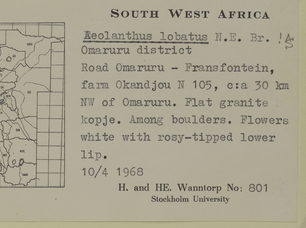 South West Africa
Aeolanthus lobatus N.E. Br. !
Omaruru district
Road Omaruru - Fransfontein,
farm Okandjou N 105, c:a 30 km
NW of Omaruru. Flat granite
kopje. Among boulders. Flowers
white with rosy-tipped lower
lip.
10/4 1968
H. and HE. Wanntorp No: 801
Stockholm University